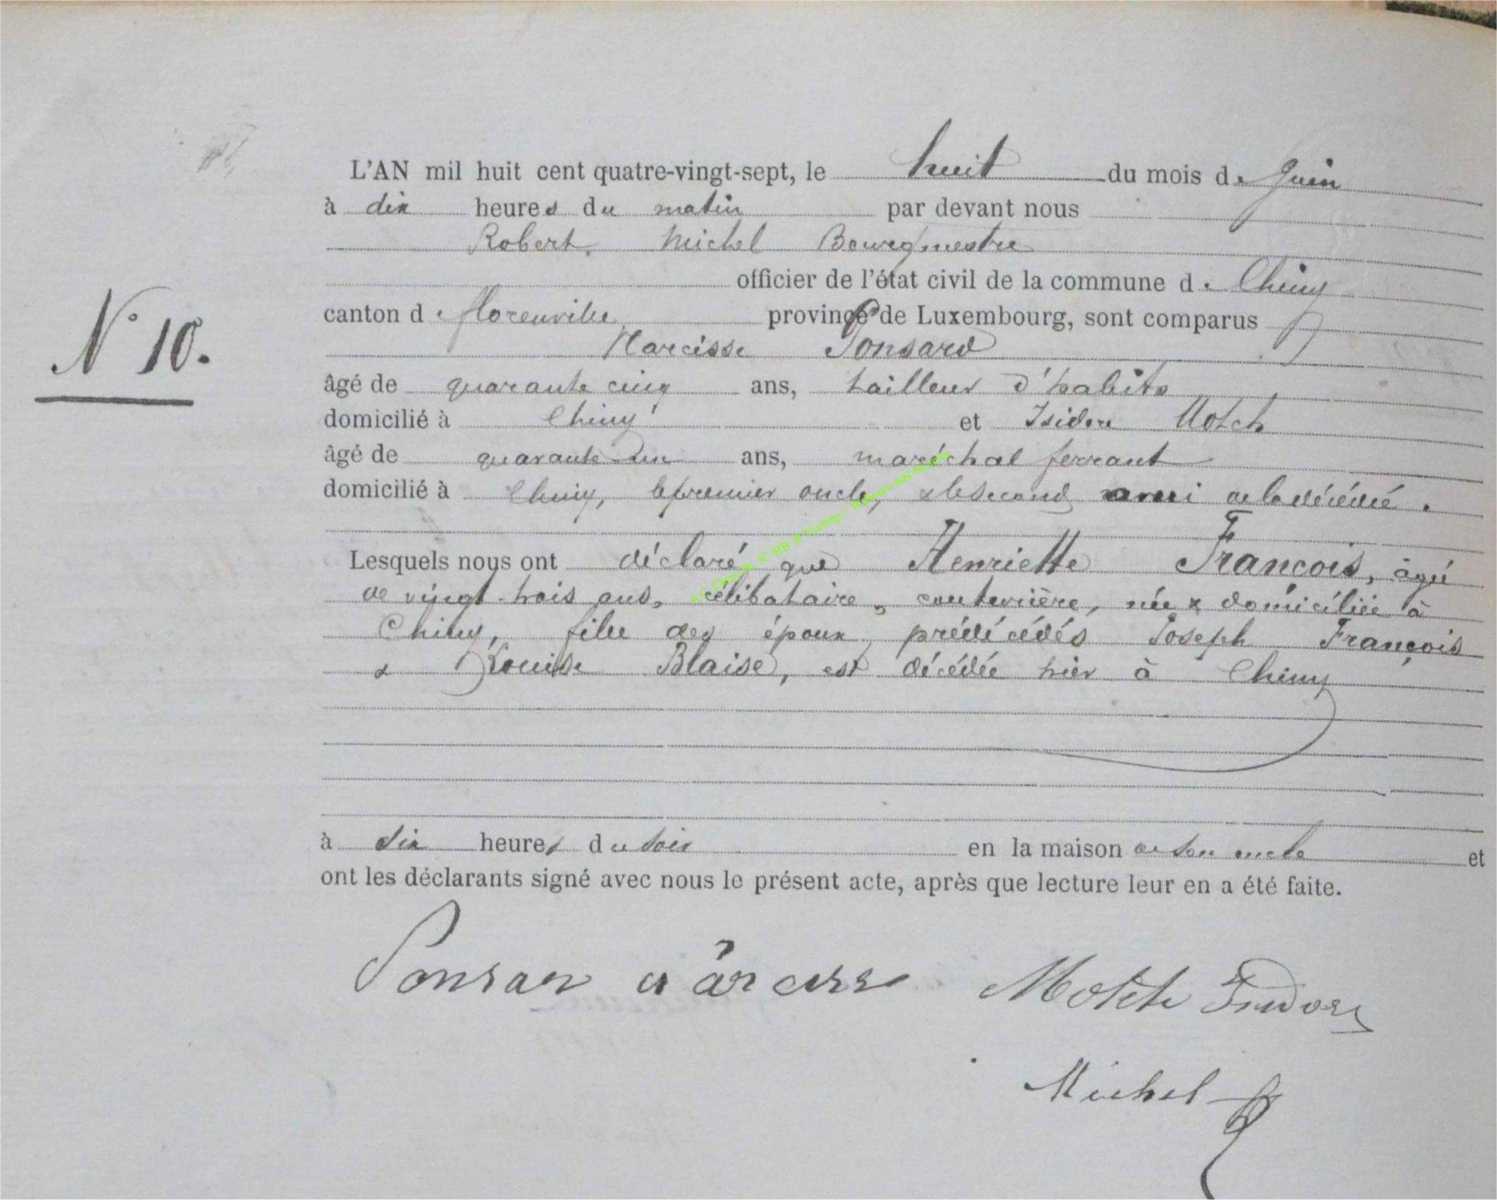 L'AN mil huit cent quatre-vingt-sept, le huit du mois de Juin
à dix heures du matin par devant nous
Robert Michel Bourgmestre
officier de l'état civil de la commune de Chiny
canton de florenville province de Luxembourg, sont comparus
Narcisse Ponsard
âgé de quarante cinq ans, tailleur d'habits
domicilié à Chiny et Isidore Motch
âgé de quarante un ans, maréchal ferrant
domicilié à Chiny, le premier oncle, & le second ami de la décédée.
Lesquels nous ont déclaré que Henriette François, âgée
de vingt-trois ans, célibataire, couturière, née & domiciliée à
Chiny, fille des époux prédécédés Joseph François
& Louise Blaise, est décédée hier à Chiny
N° 10.
à dix heures du soir en la maison de son oncle et
ont les déclarants signé avec nous le présent acte, après que lecture leur en a été faite.
Motch Isidore
Michel